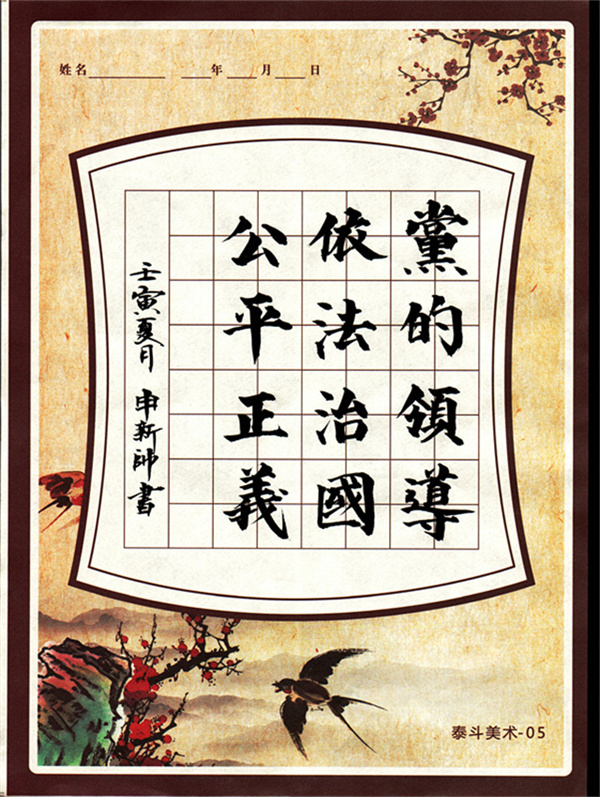 姓名 年 月 日
黨的領導
依法治國
公平正義
壬寅夏月 申新帥書
泰斗美术-05